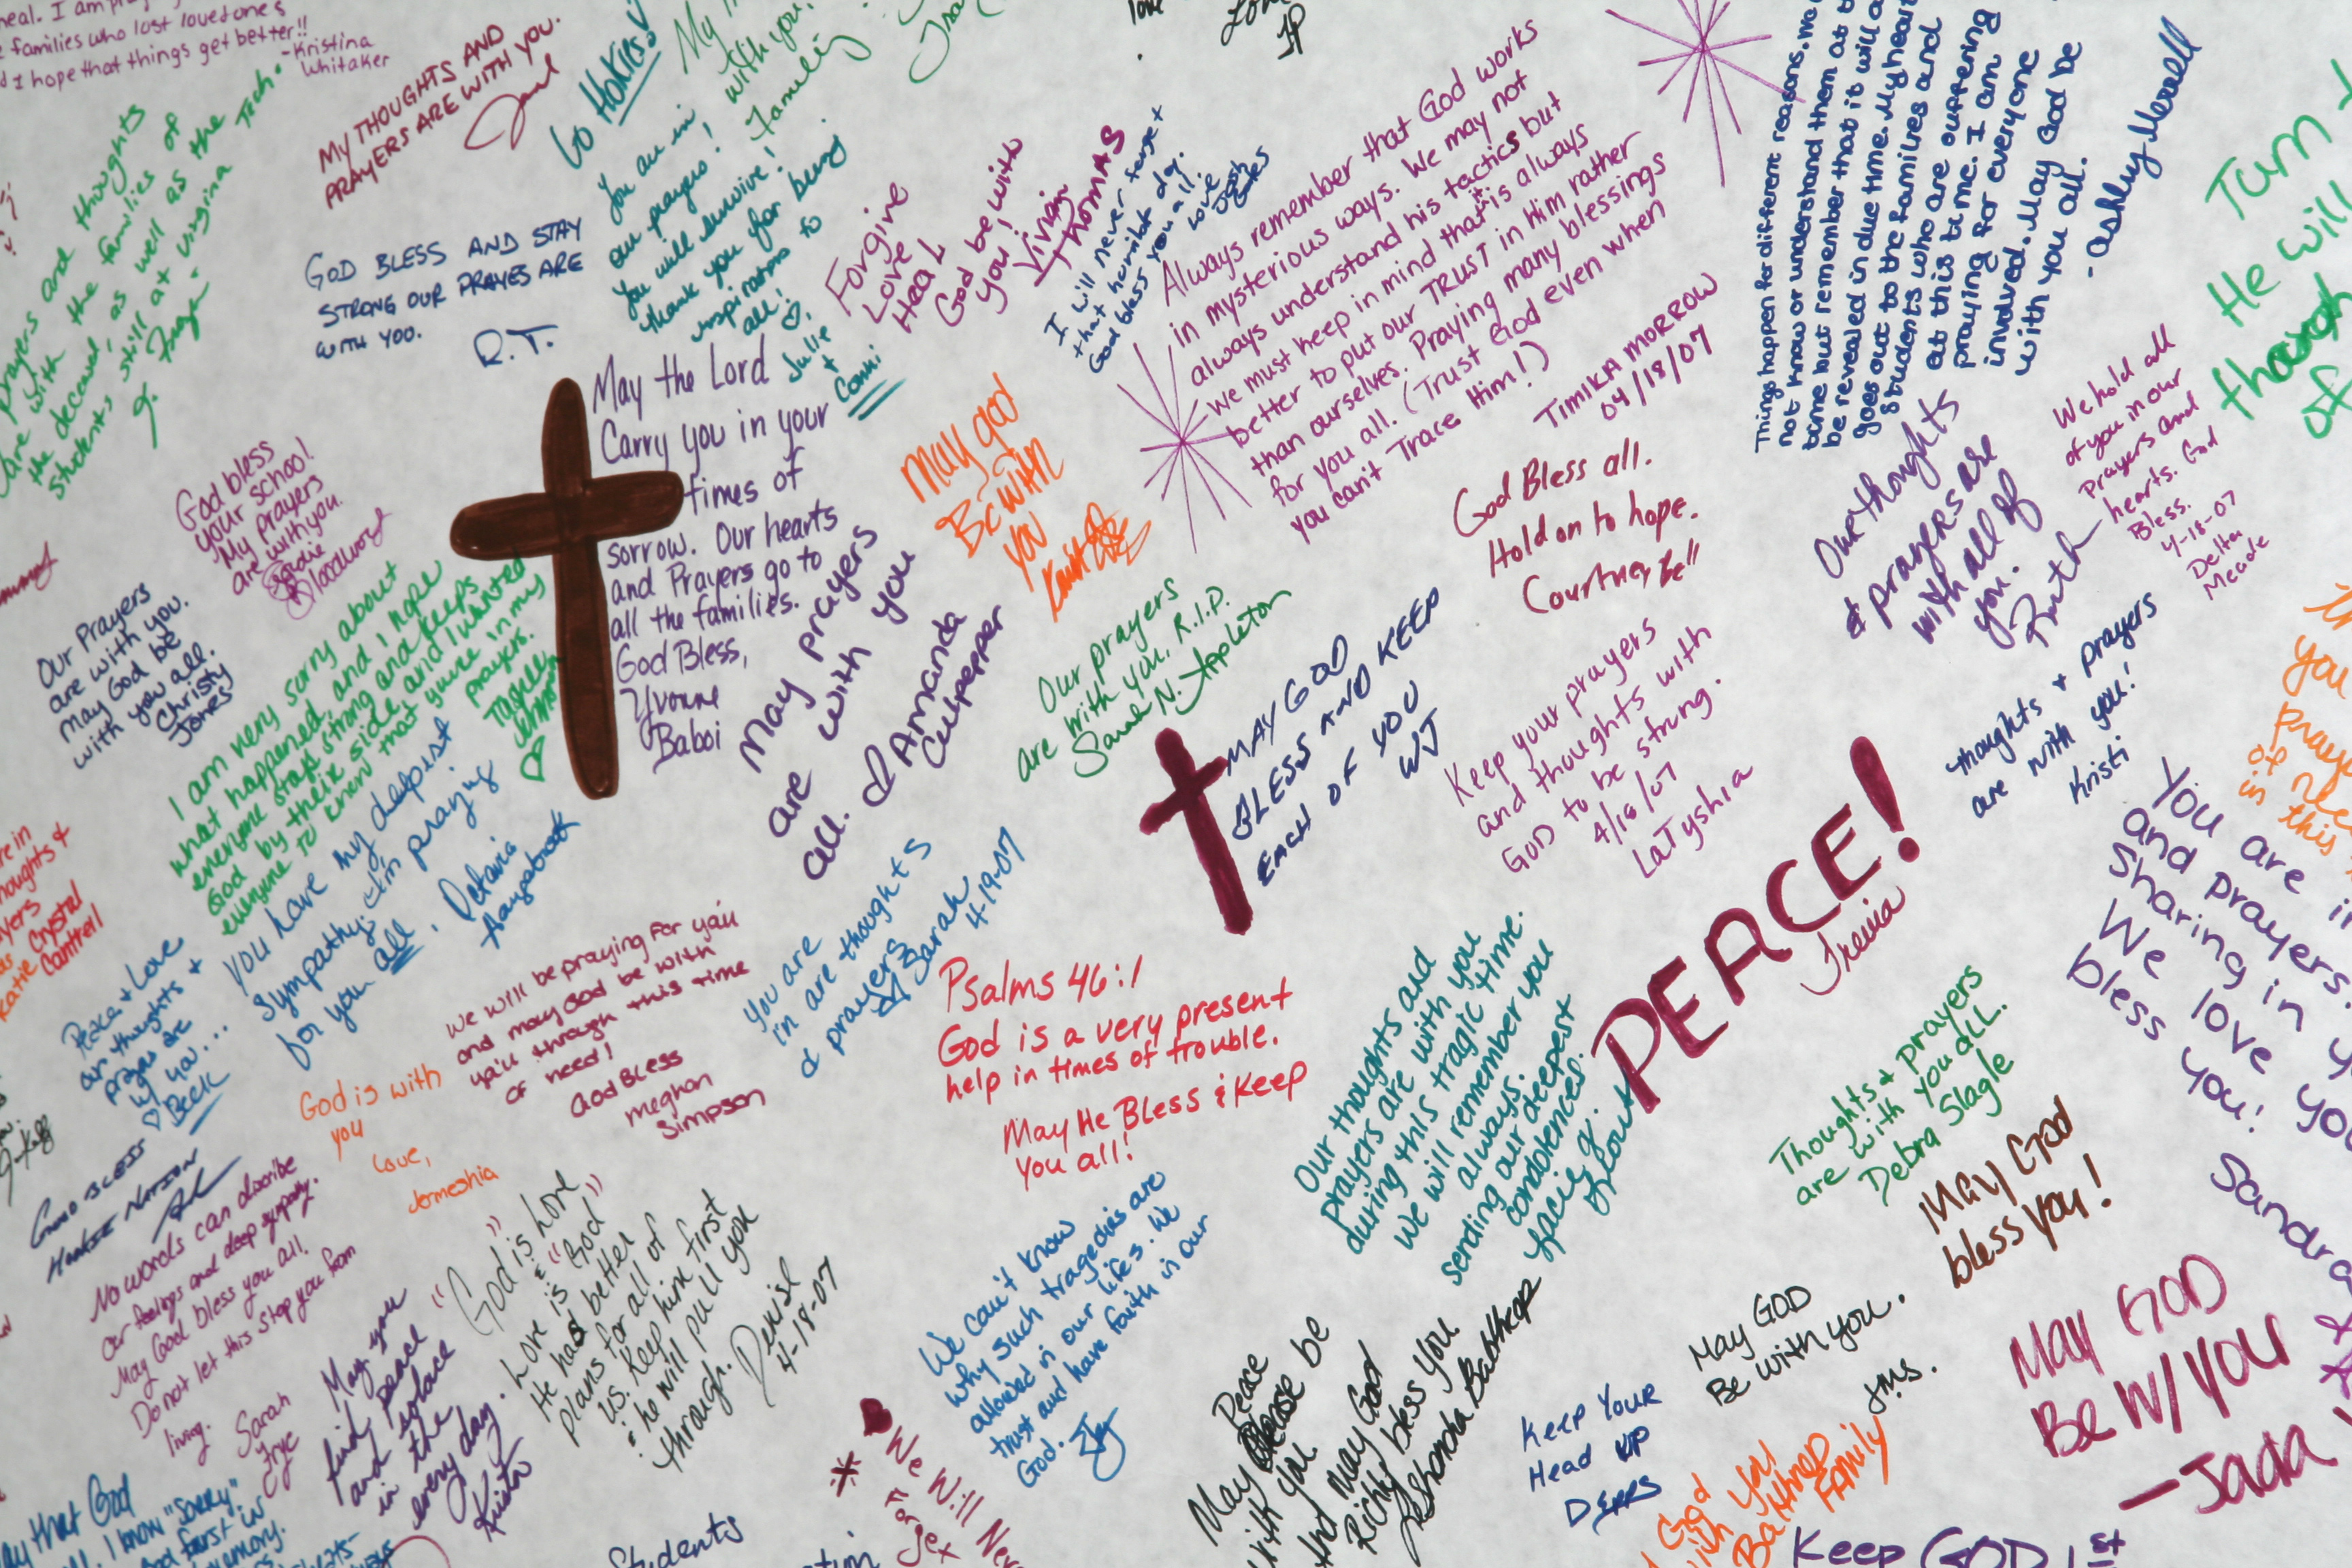 families who lost loved ones
I hope that things get better!!
-Kristina
Whitaker
MY THOUGHTS AND
PRAYERS ARE WITH YOU.
Go HOKIES!
You are in
our prayers!
You will survive!
Thank you for being
inspirations to
all!
Julie
+
Conni
prayers and thoughts
are with the families of
the deceased, as well as the
students still at Virginia Tech.
GOD BLESS AND STAY
STRONG OUR PRAYES ARE
WITH YOU.
R.T.
Forgive
Love
Heal
God be with
you!
Vivian
Thomas
I will never forget
that horrible day.
God bless you all.
Love
Josh
Always remember that God works
in mysterious ways. We may not
always understand his tactics but
we must keep in mind that it is always
better to put our TRUST in Him rather
than ourselves. Praying many blessings
for you all. (Trust God even when
you can't Trace Him!)
TIMIKA MORROW
04/18/07
Things happen for different reasons. We
not know or understand them at
time but remember that it will
be revealed in due time. My heart
goes out to the families and
students who are suffering
at this time. I am
praying for everyone
involved. May God be
with you all.
-Ashley Merrell
Turn
He will
through
of
God bless
your school!
My prayers
are with you.
Sadie
Bloodworth
May the Lord
Carry you in your
times of
sorrow. Our hearts
and Prayers go to
all the families.
God Bless,
Yvonne
Baboi
May god
Be with
you
God Bless all.
Hold on to hope.
Courtney B.
Our thoughts
& prayers are
with all of
you.
Ruth
We hold all
of you in our
Prayers and
hearts. God
Bless.
4-18-07
Delta
Meade
Our Prayers
are with you.
May God be
with you all.
Christy
Jones
I am very sorry about
what happened, and I hope
everyone stays strong and keeps
God by their side, and I wanted
everyone to know that you're in my
prayers.
May prayers
are with you
all.
Amanda
Culpepper
Our prayers
are with you, R.I.P.
Sarah N. Appleton
MAY GOD
BLESS AND KEEP
EACH OF YOU
WJ
Keep your prayers
and thoughts with
GOD to be strong.
4/18/07
LaTyshia
thoughts & prayers
are with you!
Kristi
PEACE!
Trevia
You have my deepest
sympathy. I'm praying
for you all.
Katie Crystal
Cantrell
Peace & Love
our thoughts +
prayers are
w/ you...
Beck
We will be praying for ya'll
and may God be with
ya'll through this time
of need!
God Bless
meghan
Simpson
You are
in are thoughts
& prayers
Sarah
4-19-07
Psalms 46:1
God is a very present
help in times of trouble.
May He Bless & Keep
You all!
Our thoughts and
prayers are with you
during this tragic time.
We will remember you
always.
sending our deepest
condolences.
You are in
and prayers
Sharing in
We love you
bless you!
Sandra
Thoughts & prayers
are with you all.
Debra Slagle
God is with
you
Love,
Jermeshia
GOD BLESS
HOKIE NATION
No words can describe
our feelings and deep sympathy.
May God bless you all.
Do not let this stop you from
living.
Sarah
Frye
"God is Love
&
Love is "God"
He has better
plans for all of
us. Keep him first
& he will pull you
through.
Denise
4-18-07
May you
find peace
and solace
in the
every day.
Kristin
We can't know
why such tragedies are
allowed in our lifes. We
trust and have faith in our
God.
May God
bless you!
May GOD
Be with you.
JMS.
May GOD
Be W/ YOU
-Jada
Peace
May Please be
with you
And May God
Richly bless you
LaShonda Battheap
Keep Your
Head UP
We Will
Forget
God
with you
FAMILY
Keep GOD 1st
Students